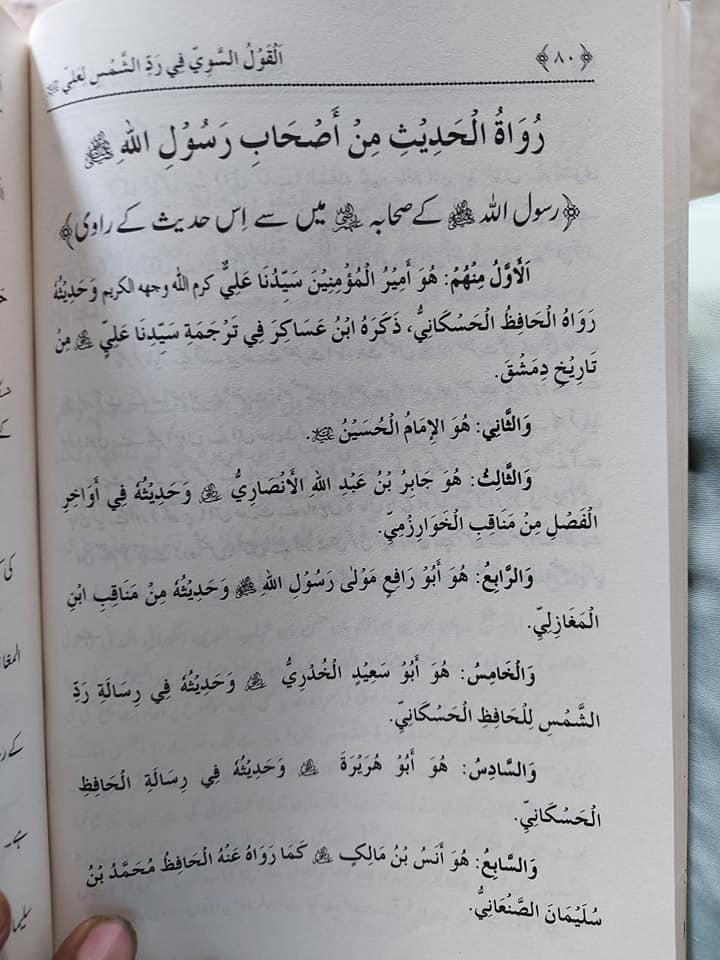 ﴿٨٠﴾ اَلْقَوْلُ السَّوِيّ فِي رَدِّ الشَّمْسِ لِعَلِيّ
رُوَاةُ الْحَدِيْثِ مِنْ أَصْحَابِ رَسُوْلِ اللهِ ﷺ
﴿رسول اللہ ﷺ کے صحابہ میں سے اِس حدیث کے راوی﴾
اَلْأَوَّلُ مِنْهُمْ: هُوَ أَمِيْرُ الْمُؤْمِنِيْنَ سَيِّدُنَا عَلِيٌّ كرم الله وجهه الكريم وَحَدِيْثُهٗ
رَوَاهُ الْحَافِظُ الْحَسْكَانِيُّ، ذَكَرَهُ ابْنُ عَسَاكِرَ فِي تَرْجَمَةِ سَيِّدِنَا عَلِيٍّ مِنْ
تَارِيْخِ دِمَشْقَ.
وَالثَّانِي: هُوَ الإِمَامُ الْحُسَيْنُ.
وَالثَّالِثُ: هُوَ جَابِرُ بْنُ عَبْدِ اللهِ الْأَنْصَارِيُّ وَحَدِيْثُهٗ فِي أَوَاخِرِ
الْفَصْلِ مِنْ مَنَاقِبِ الْخَوَارِزْمِيِّ.
وَالرَّابِعُ: هُوَ أَبُوْ رَافِعٍ مَوْلٰى رَسُوْلِ اللهِ ﷺ وَحَدِيْثُهٗ مِنْ مَنَاقِبِ ابْنِ
الْمَغَازِلِيِّ.
وَالْخَامِسُ: هُوَ أَبُوْ سَعِيْدٍ الْخُدْرِيُّ وَحَدِيْثُهٗ فِي رِسَالَةِ رَدِّ
الشَّمْسِ لِلْحَافِظِ الْحَسْكَانِيِّ.
وَالسَّادِسُ: هُوَ أَبُوْ هُرَيْرَةَ وَحَدِيْثُهٗ فِي رِسَالَةِ الْحَافِظِ
الْحَسْكَانِيِّ.
وَالسَّابِعُ: هُوَ أَنَسُ بْنُ مَالِكٍ كَمَا رَوَاهُ عَنْهُ الْحَافِظُ مُحَمَّدُ بْنُ
سُلَيْمَانَ الصَّنْعَانِيُّ.